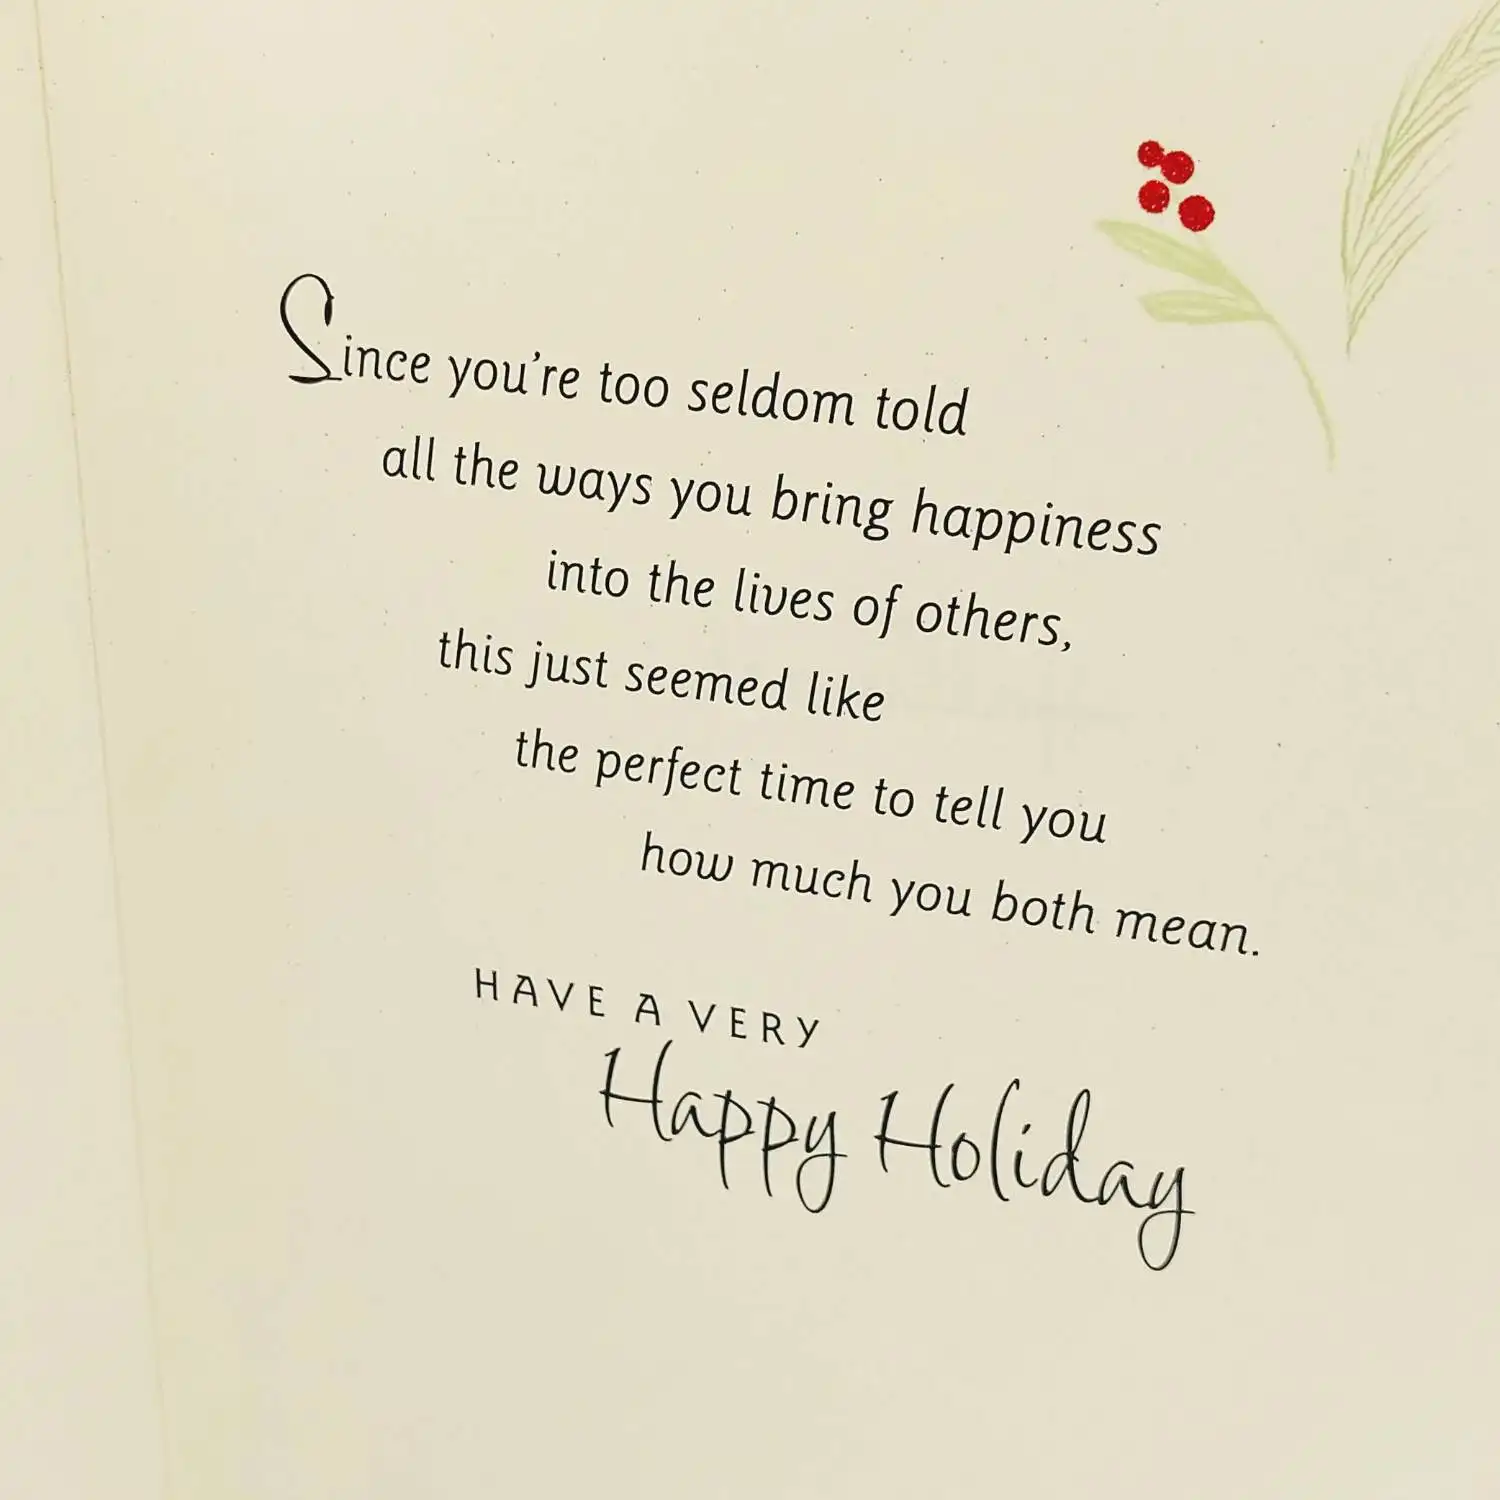 Since you're too seldom told
all the ways you bring happiness
into the lives of others,
this just seemed like
the perfect time to tell you
how much you both mean.
HAVE A VERY
Happy Holiday